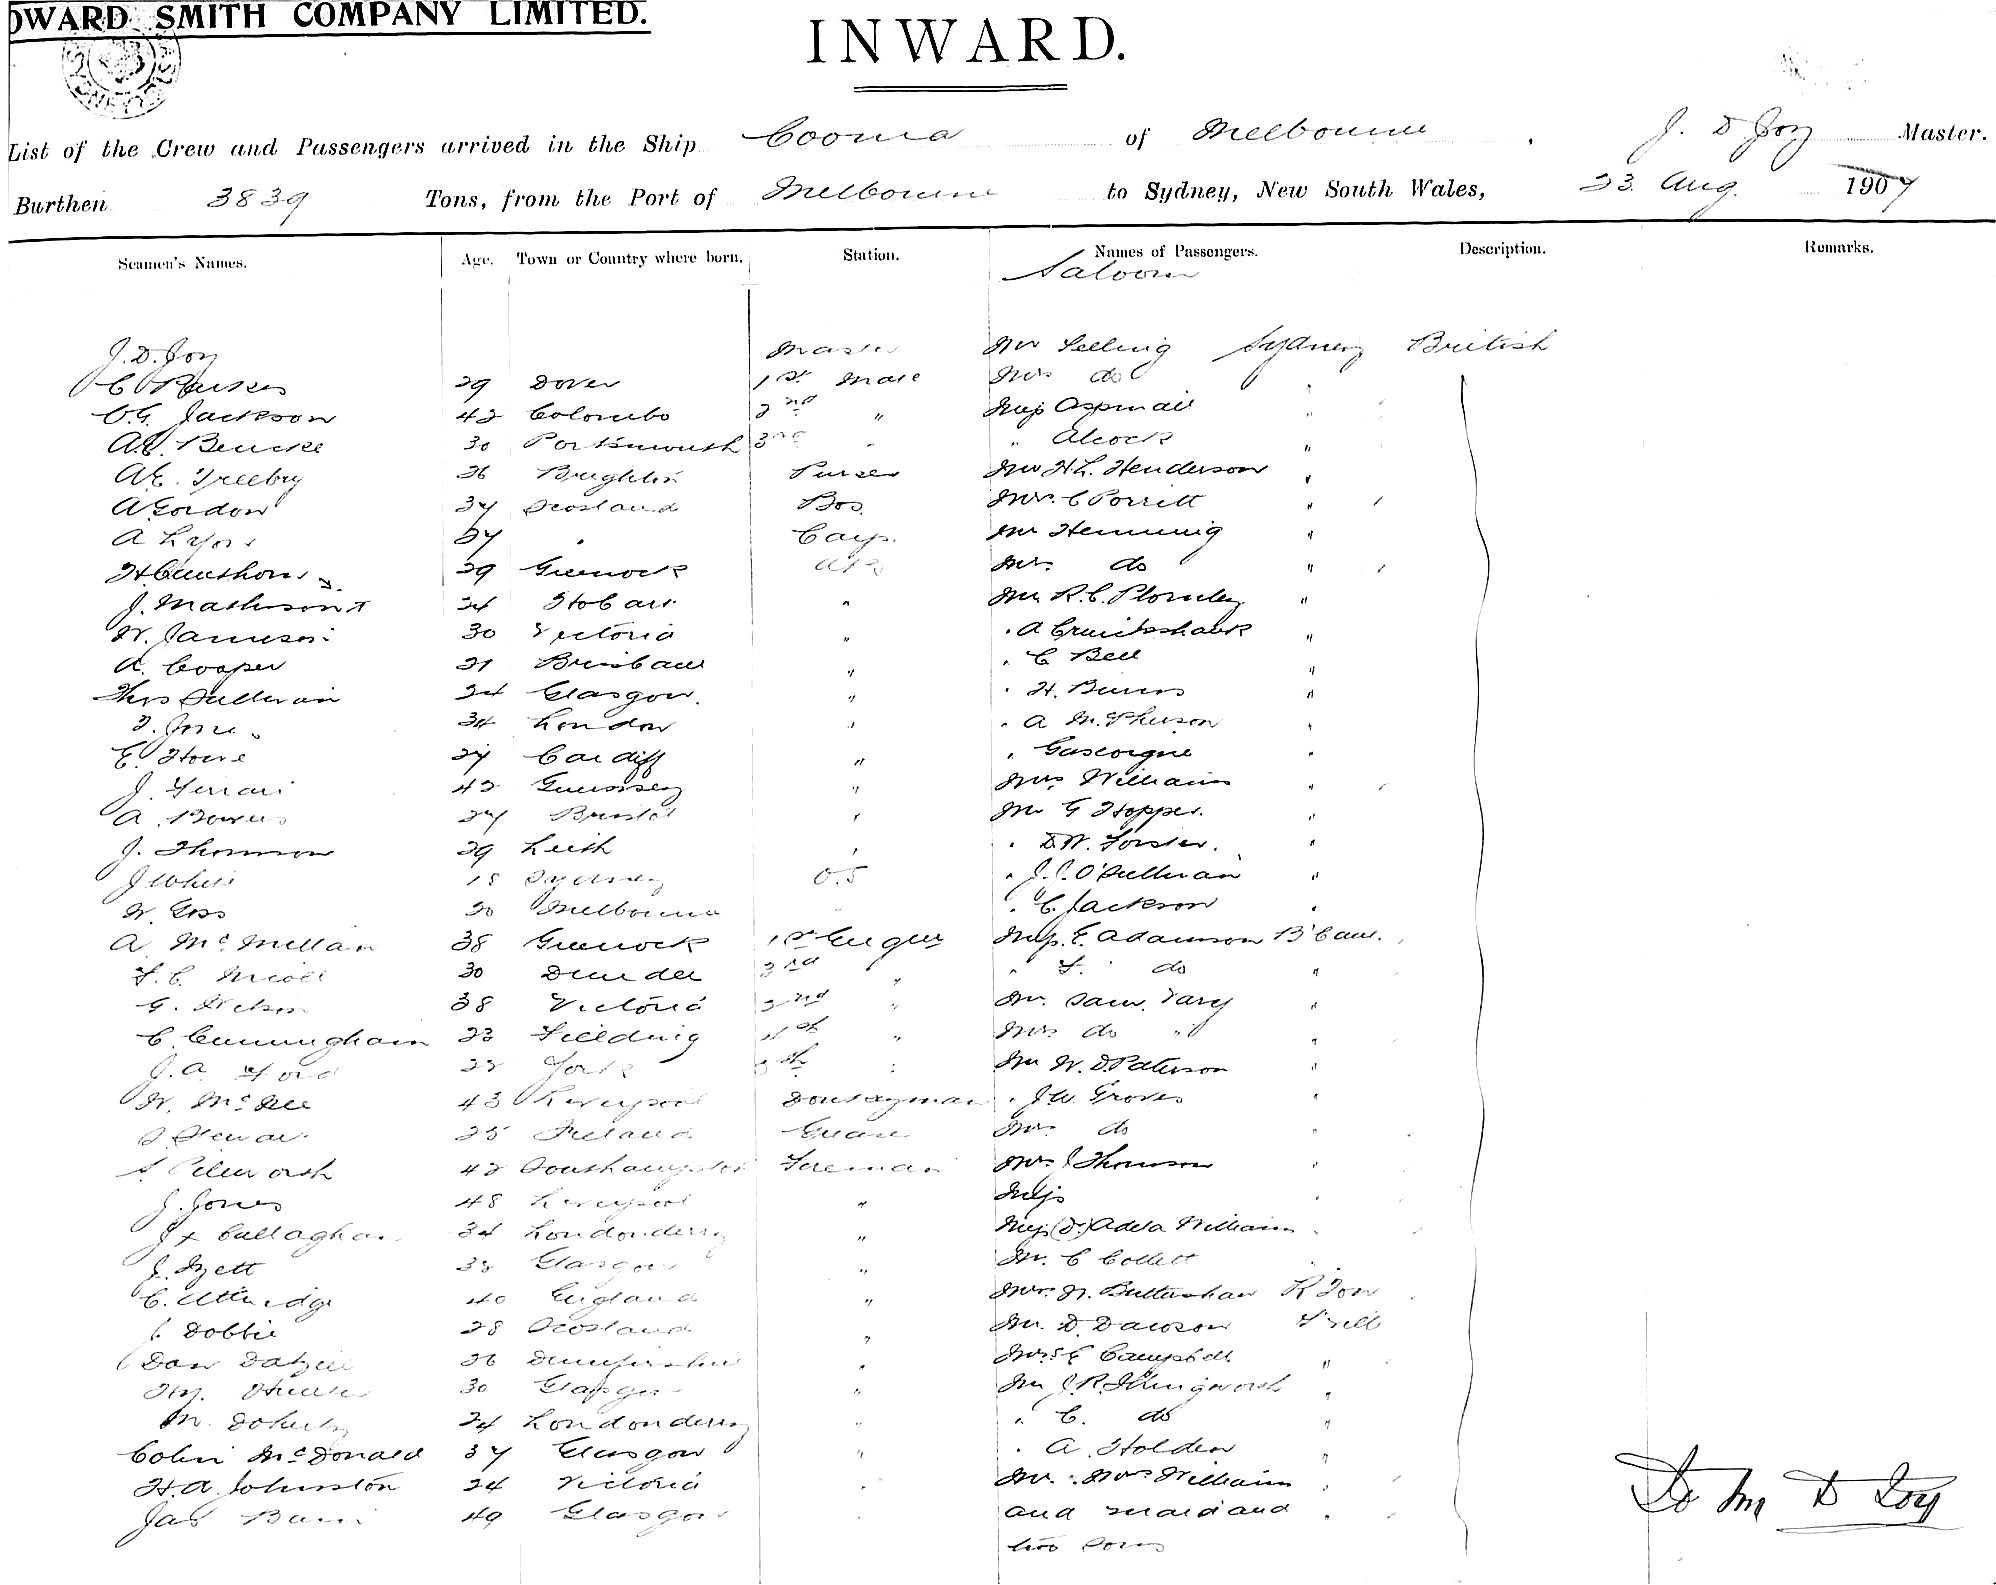 OWARD SMITH COMPANY LIMITED.
INWARD.
List of the Crew and Passengers arrived in the Ship Cooma of Melbourne, J. D Joy Master.
Burthen 3839 Tons, from the Port of Melbourne to Sydney, New South Wales, 23. Aug. 1907
Seamen's Names. Age. Town or Country where born. Station. Names of Passengers. Description. Remarks.
Saloon
J. D. Joy Master Mr Selling Sydney British
C 29 Dover 1st Mate Mrs do "
C.G. Jackson 42 Colombo 2nd " Miss Aspinall "
A.E. 30 Portsmouth 3rd " " Alcock "
A.E. Treeby 26 Brighton Purser Mr H.L. Henderson "
A Gordon 37 Scotland Bos. Mrs. C Porritt "
A 27 " Carp. Mr Hemming "
H. 29 Greenock A B Mrs. do "
J. 24 Hobart " Mr R. C. Plomley "
W. Jameson 30 Victoria " " A Cruickshank "
A. Cooper 21 Brisbane " " C Bell "
Thos Sullivan 24 Glasgow. " " H. Burns "
34 London " " A McPherson "
E. Howe 27 Cardiff " " Gascoigne "
J. Ferrari 42 Guernsey " Mrs Williams "
A. 27 Bristol " Mr G Hopper. "
J. Thomson 29 Leith " " D.W. Forster. "
J White 18 Sydney O.S " J. J. O'Sullivan "
W. Goss 20 Melbourne " " C. Jackson "
A. McMillan 38 Greenock 1st Engnr Miss. E. Adamson B'bane.
F. C. Nicoll 30 Dundee " " F. do "
G. 38 Victoria 2nd " Mr. Saml. "
C. Cunningham 23 Feilding " Mrs do "
J. A. Ford 22 York " Mr W. D. Paterson "
W. McNee 43 Liverpool Donkeyman " J W. Groves "
25 Ireland Mrs do "
42 Southampton Fireman Mrs J Thomson "
J. Jones 48 Liverpool " Miss "
J Callaghan 34 Londonderry " Miss (D.) Adela Williams "
J. 33 Glasgow " Mr. C Collett "
C. 40 England " Mrs. N. Buttershaw R'Ton
J. Dobbie 28 Scotland " Mr. D. Dawson T'ville
Dan Dalziel 26 " Mrs. E Campbell "
30 Glasgow " Mr J. R. Illingworth "
M. Doherty 24 Londonderry " " C. do "
Colin McDonald 37 Glasgow " " A. Holden "
H. A. Johnston 24 Victoria " Mr. Mrs Williams "
Jas 49 Glasgow " and maid and "
two sons
D Joy